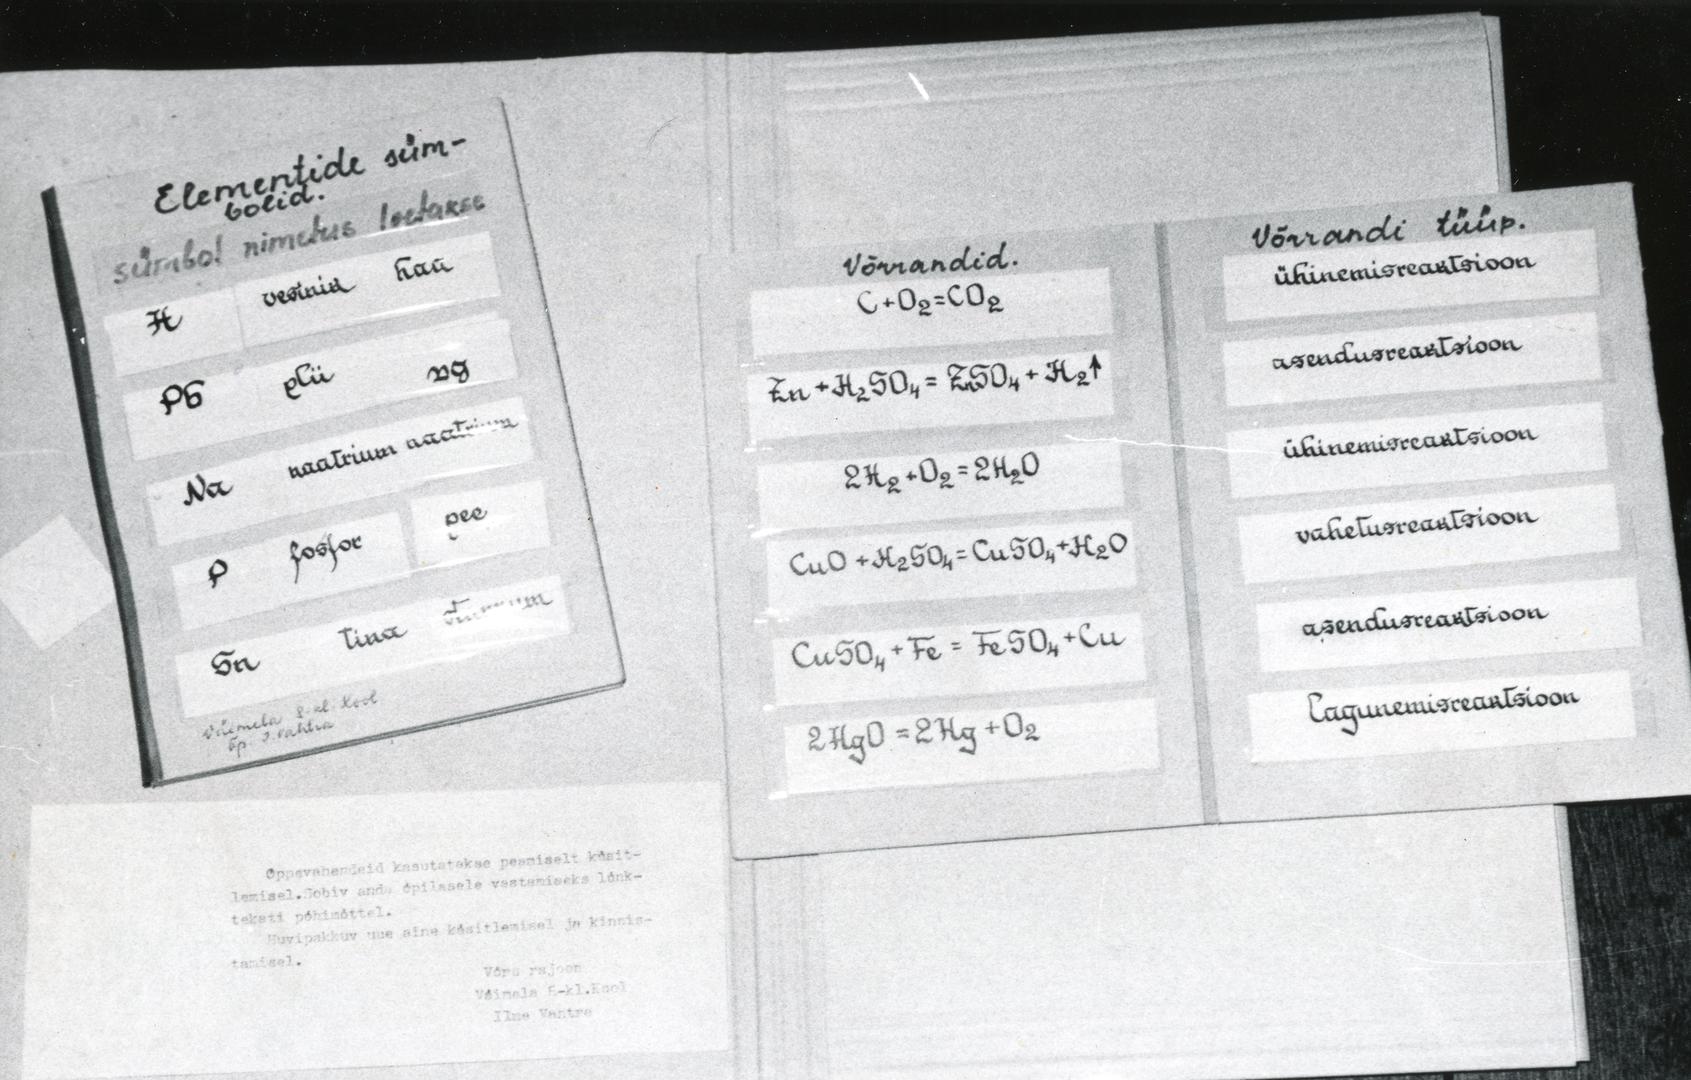 Elementide süm-
bolid.
sümbol nimetus loetakse
H vesinik haa
Pb plii
Na naatrium naatrium
P fosfor pee
Sn tina
Võrrandid.
C+O₂=CO₂
Zn+H₂SO₄=ZnSO₄+H₂↑
2H₂+O₂=2H₂O
CuO+H₂SO₄=CuSO₄+H₂O
CuSO₄+Fe=FeSO₄+Cu
2HgO=2Hg+O₂
Võrrandi tüüp.
ühinemisreaktsioon
asendusreaktsioon
ühinemisreaktsioon
vahetusreaktsioon
asendusreaktsioon
lagunemisreaktsioon
Õppevahendeid kasutatakse peamiselt käsit-
lemisel.Sobiv anda õpilasele vastamiseks lünk-
teksti põhimõttel.
Huvipakkuv uue aine käsitlemisel ja kinnis-
tamisel.
Võru rajoon
Väimela 8-kl.Kool